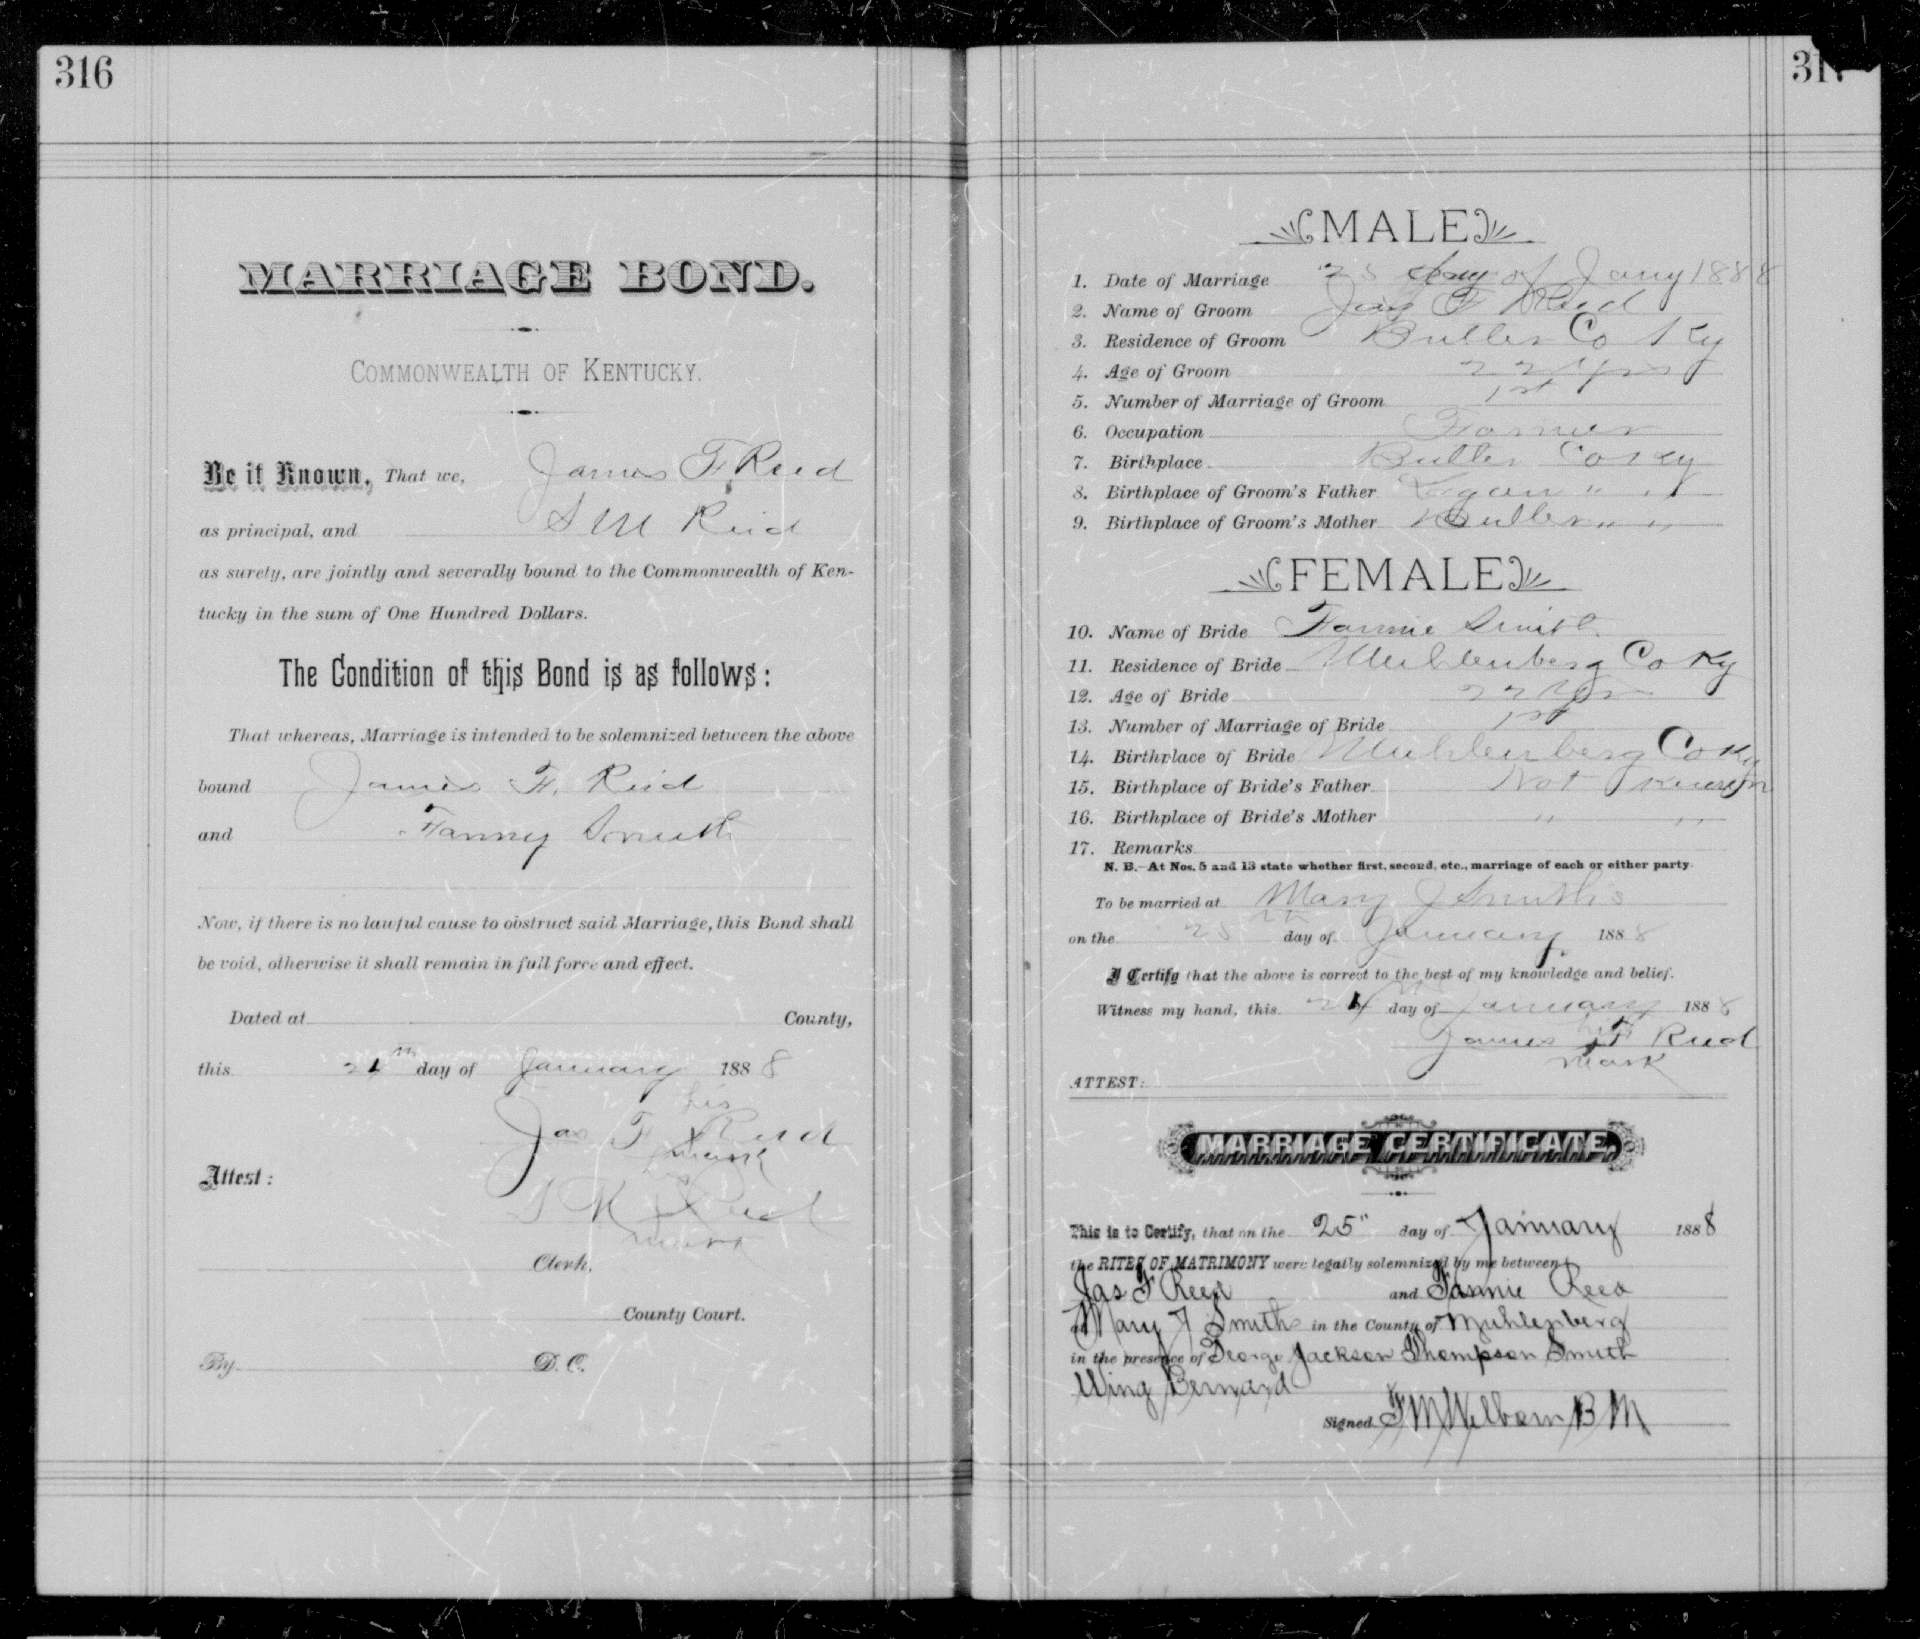 316
MARRIAGE BOND.
COMMONWEALTH OF KENTUCKY.
Be it Known, That we, James F Reed
as principal, and S M Reid
as surety, are jointly and severally bound to the Commonwealth of Ken-
tucky in the sum of One Hundred Dollars.
The Condition of this Bond is as follows:
That whereas, Marriage is intended to be solemnized between the above
bound James F. Reid
and Fanny Smith
Now, if there is no lawful cause to obstruct said Marriage, this Bond shall
be void, otherwise it shall remain in full force and effect.
Dated at County,
this day of January 1888
his
Jas F X Reed
mark
Attest:
X Reed
mark
Clerk,
County Court.
By D. C.
MALE
1. Date of Marriage 25 day of Jany 1888
2. Name of Groom Jas F Reed
3. Residence of Groom Butler Co Ky
4. Age of Groom 22 yrs
5. Number of Marriage of Groom 1st
6. Occupation Farmer
7. Birthplace Butler Co Ky
8. Birthplace of Groom's Father Logan " "
9. Birthplace of Groom's Mother Butler " "
FEMALE
10. Name of Bride Fannie Smith
11. Residence of Bride Muhlenberg Co Ky
12. Age of Bride 22 yrs
13. Number of Marriage of Bride 1st
14. Birthplace of Bride Muhlenberg Co Ky
15. Birthplace of Bride's Father Not Known
16. Birthplace of Bride's Mother " "
17. Remarks
N. B.—At Nos. 5 and 13 state whether first, second, etc., marriage of each or either party.
To be married at Mary J Smith's
on the 25th day of January 1888
I Certify that the above is correct to the best of my knowledge and belief.
Witness my hand, this day of January 1888
his
James F Reed
mark
ATTEST:
MARRIAGE CERTIFICATE.
This is to Certify, that on the 25" day of January 1888
the RITES OF MATRIMONY were legally solemnized by me between
Jas F Reed and Fannie Reed
at Mary J Smiths in the County of Muhlenberg
in the presence of George Jackson Thompson Smith
Wing Bernard
Signed F M Welborn B M